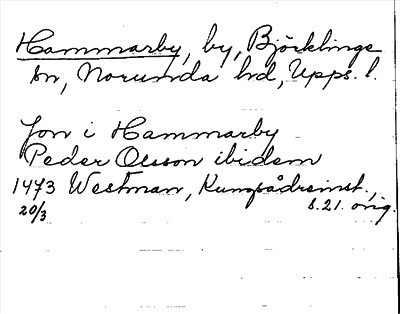 Hammarby, by, Björklinge
sn, Norunda hd, Upps. l.
Jon i Hammarby
Peder Olsson ibidem
1473 Westman, Kungsådreinst.,
20/3 s. 21. orig.